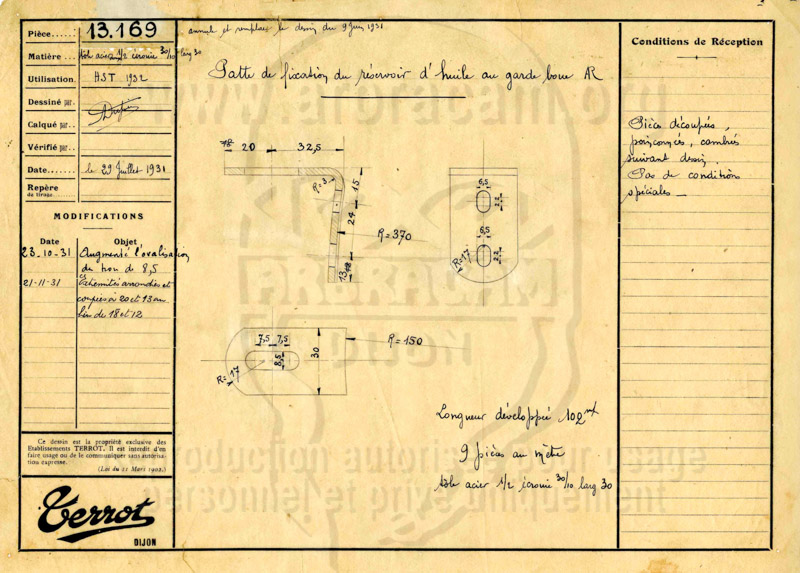 Pièce......: 13.169
annule et remplace le dessin du 9 Juin 1931
Matière ... tôle acier 1/2 écrouie 30/10 larg 30
Utilisation. HST 1932
Dessiné par.
Calqué par..
Vérifié par.
Date....... le 29 Juillet 1931
Repère
de tirage.
MODIFICATIONS
Date Objet
23-10-31 Augmenté l'ovalisation
du trou de 8,5
21-11-31 Extrémités arrondies et
coupées à 20 et 13 au
lieu de 18 et 12
Ce dessin est la propriété exclusive des
Etablissements TERROT. Il est interdit d'en
faire usage ou de le communiquer sans autorisa-
tion expresse.
(Loi du 11 Mars 1902.)
Terrot
DIJON
Patte de fixation du réservoir d'huile au garde boue AR
18 20 32,5
R=3
15
24
R=370
13 12
6,5
22
6,5
22
R=17
7,5 7,5
8,5
30
R=150
R=17
Longueur développée 102 mm
9 pièces au mètre
tôle acier 1/2 écrouie 30/10 larg 30
Conditions de Réception
Pièces découpées,
poinçonnées, cambrées
suivant dessin.
Pas de conditions
spéciales
www.arbracam.org
ARBRACAM
DIJON
reproduction autorisée pour usage
personnel et privé uniquement